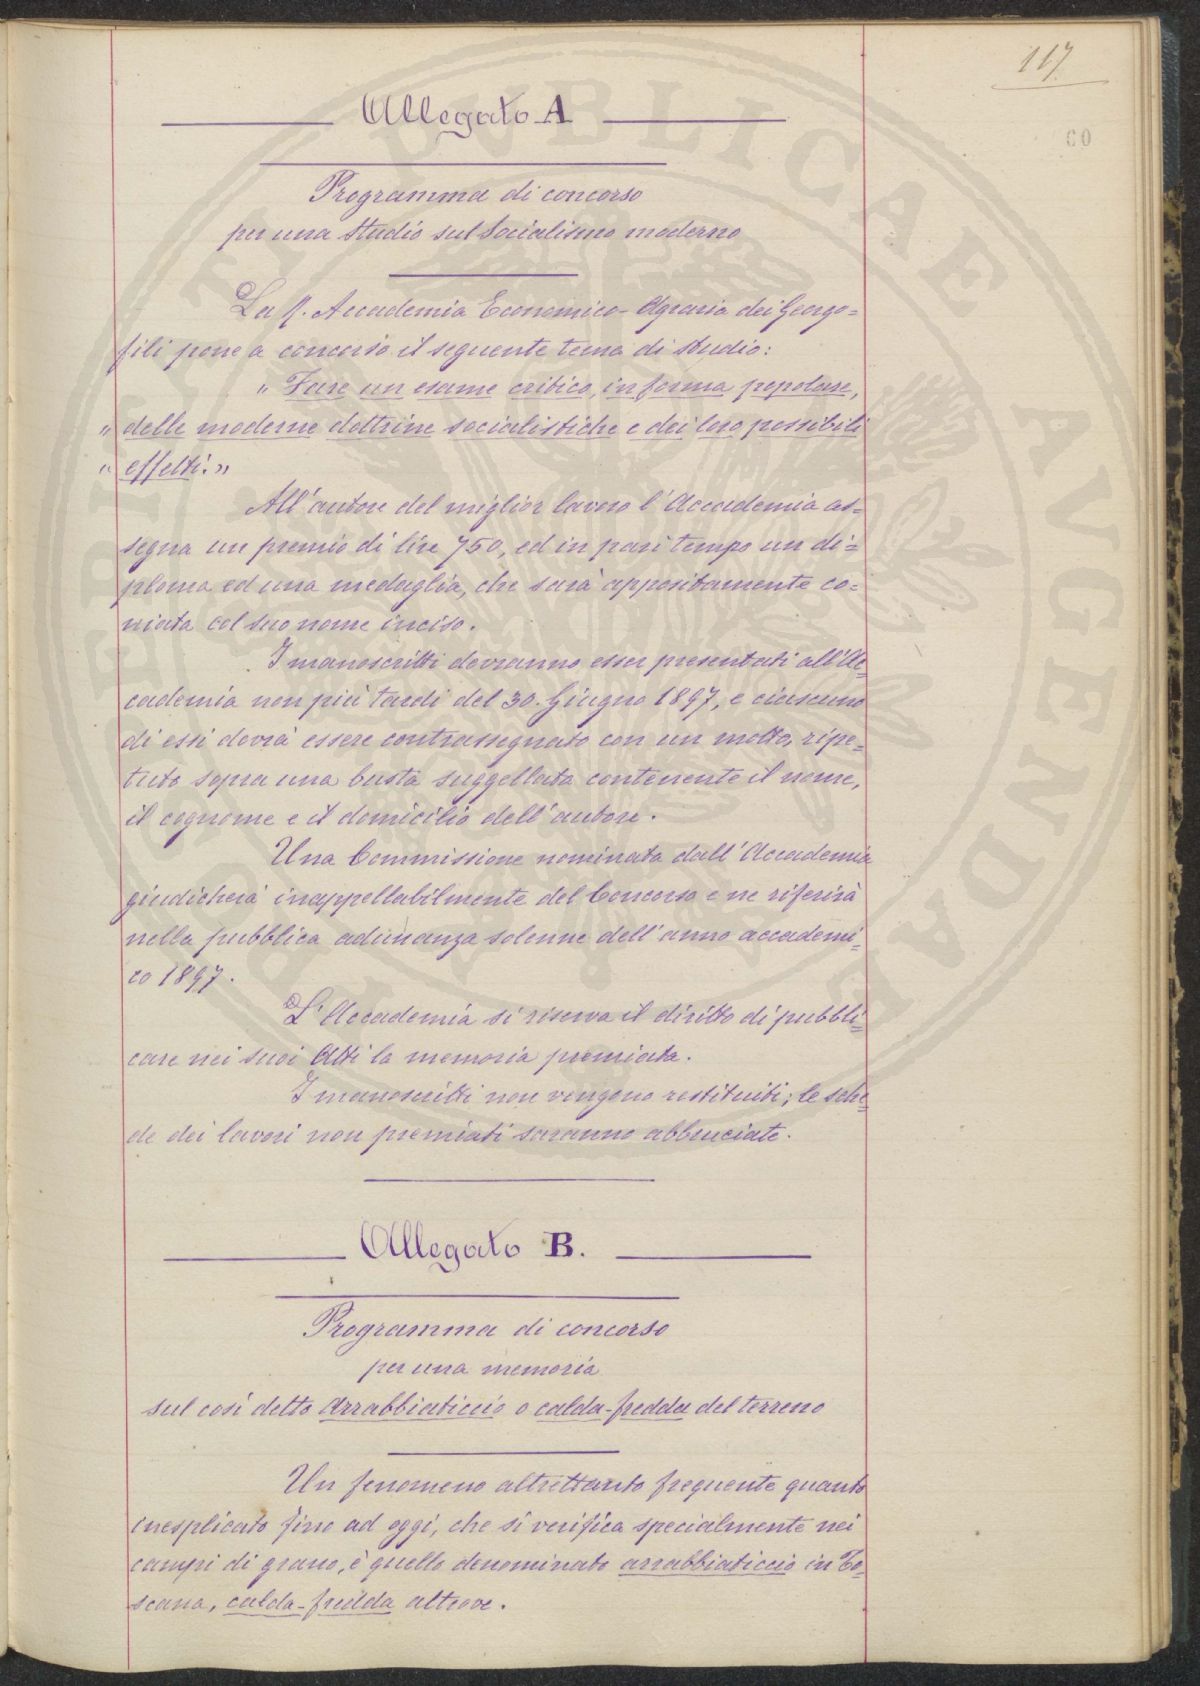 117
60
Allegato A
Programma di concorso
per uno Studio sul Socialismo moderno
La R. Accademia Economico-Agraria dei Georgo=
fili pone a concorso il seguente tema di studio:
" Fare un esame critico, in forma popolare,
" delle moderne dottrine socialistiche e dei loro possibili
" effetti."
All'autore del miglior lavoro l'Accademia as=
segna un premio di lire 750, ed in pari tempo un di=
ploma ed una medaglia, che sarà appositamente co=
niata col suo nome inciso.
I manoscritti dovranno esser presentati all'Ac=
cademia non più tardi del 30. Giugno 1897, e ciascuno
di essi dovrà essere contrassegnato con un motto, ripe=
tuto sopra una busta suggellata contenente il nome,
il cognome e il domicilio dell'autore.
Una Commissione nominata dall'Accademia
giudicherà inappellabilmente del Concorso e ne riferirà
nella pubblica adunanza solenne dell'anno accademi=
co 1897.
L'Accademia si riserva il diritto di pubbli=
care nei suoi Atti la memoria premiata.
I manoscritti non vengono restituiti; le sche=
de dei lavori non premiati saranno abbruciate.
Allegato B.
Programma di concorso
per una memoria
sul così detto arrabbiaticcio o calda-fredda del terreno
Un fenomeno altrettanto frequente quanto
inesplicato fino ad oggi, che si verifica specialmente nei
campi di grano, è quello denominato arrabbiaticcio in To=
scana, calda-fredda altrove.
PUBLICAE
AUGENDAE